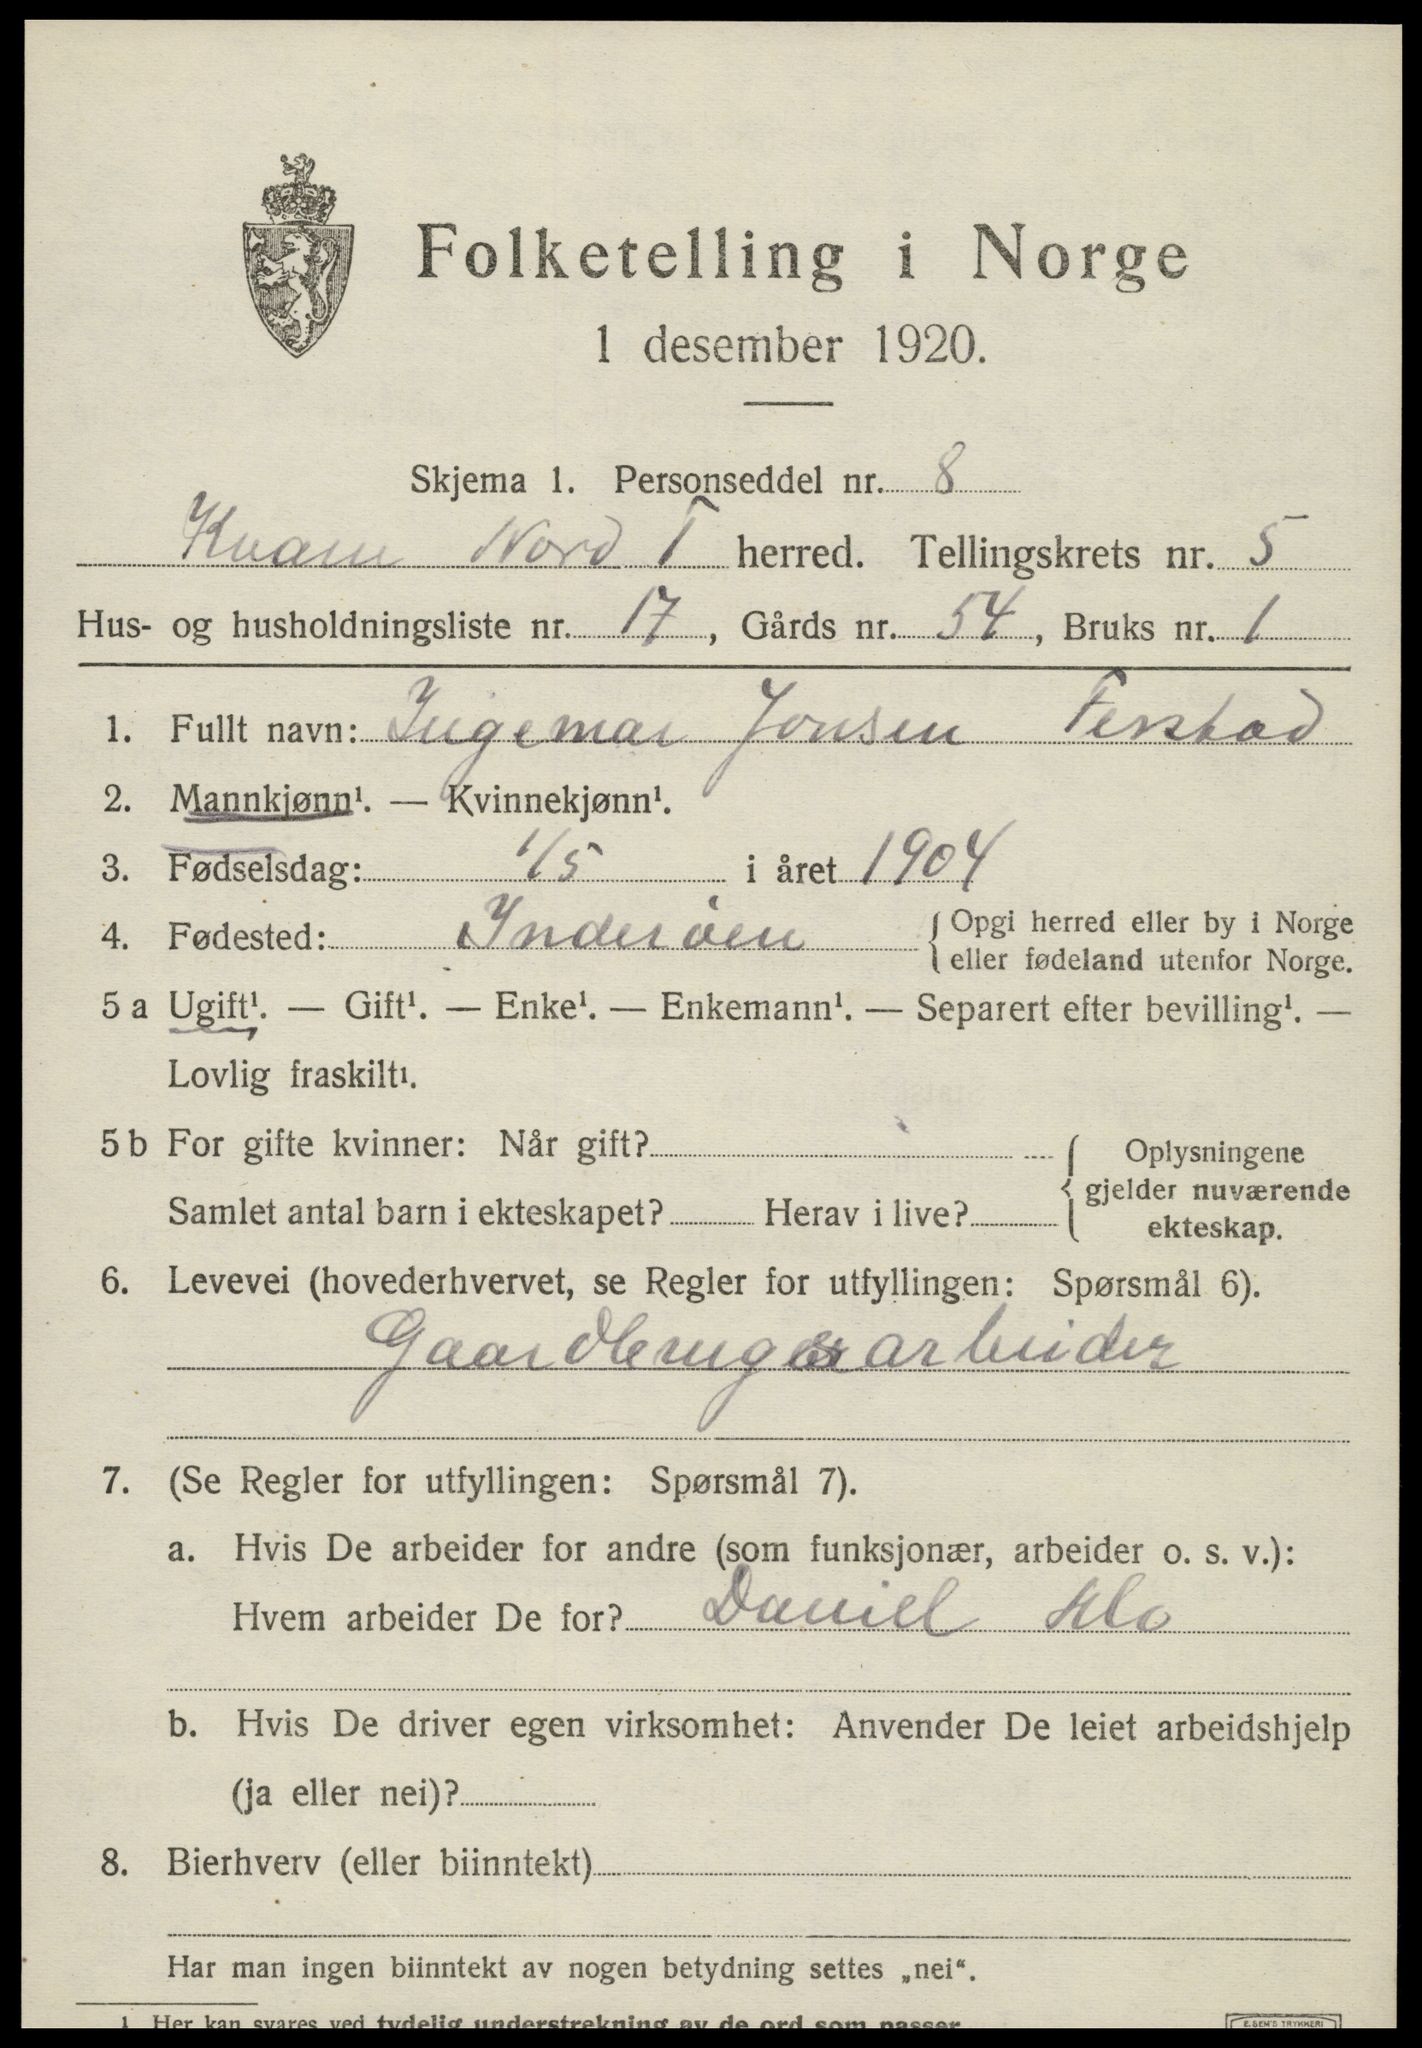 Folketelling i Norge
1 desember 1920.
Skjema 1. Personseddel nr. 8
Kvam Nord T herred. Tellingskrets nr. 5
Hus- og husholdningsliste nr. 17, Gårds nr. 54, Bruks nr. 1
1. Fullt navn: Ingemar Jonsen Ferstad
2. Mannkjønn¹. — Kvinnekjønn¹.
3. Fødselsdag: 1/5 i året 1904
4. Fødested: Inderöen { Opgi herred eller by i Norge
eller fødeland utenfor Norge.
5 a Ugift¹. — Gift¹. — Enke¹. — Enkemann¹. — Separert efter bevilling¹. —
Lovlig fraskilt¹.
5 b For gifte kvinner: Når gift? { Oplysningene
gjelder nuværende
Samlet antal barn i ekteskapet? Herav i live?
ekteskap.
6. Levevei (hovederhvervet, se Regler for utfyllingen: Spørsmål 6).
Gaardbrugsarbeider
7. (Se Regler for utfyllingen: Spørsmål 7).
a. Hvis De arbeider for andre (som funksjonær, arbeider o. s. v.):
Hvem arbeider De for? Daniel Klo
b. Hvis De driver egen virksomhet: Anvender De leiet arbeidshjelp
(ja eller nei)?
8. Bierhverv (eller biinntekt)
Har man ingen biinntekt av nogen betydning settes „nei“.
1 Her kan svares ved tydelig understrekning av de ord som passer
E. SEM'S TRYKKERI